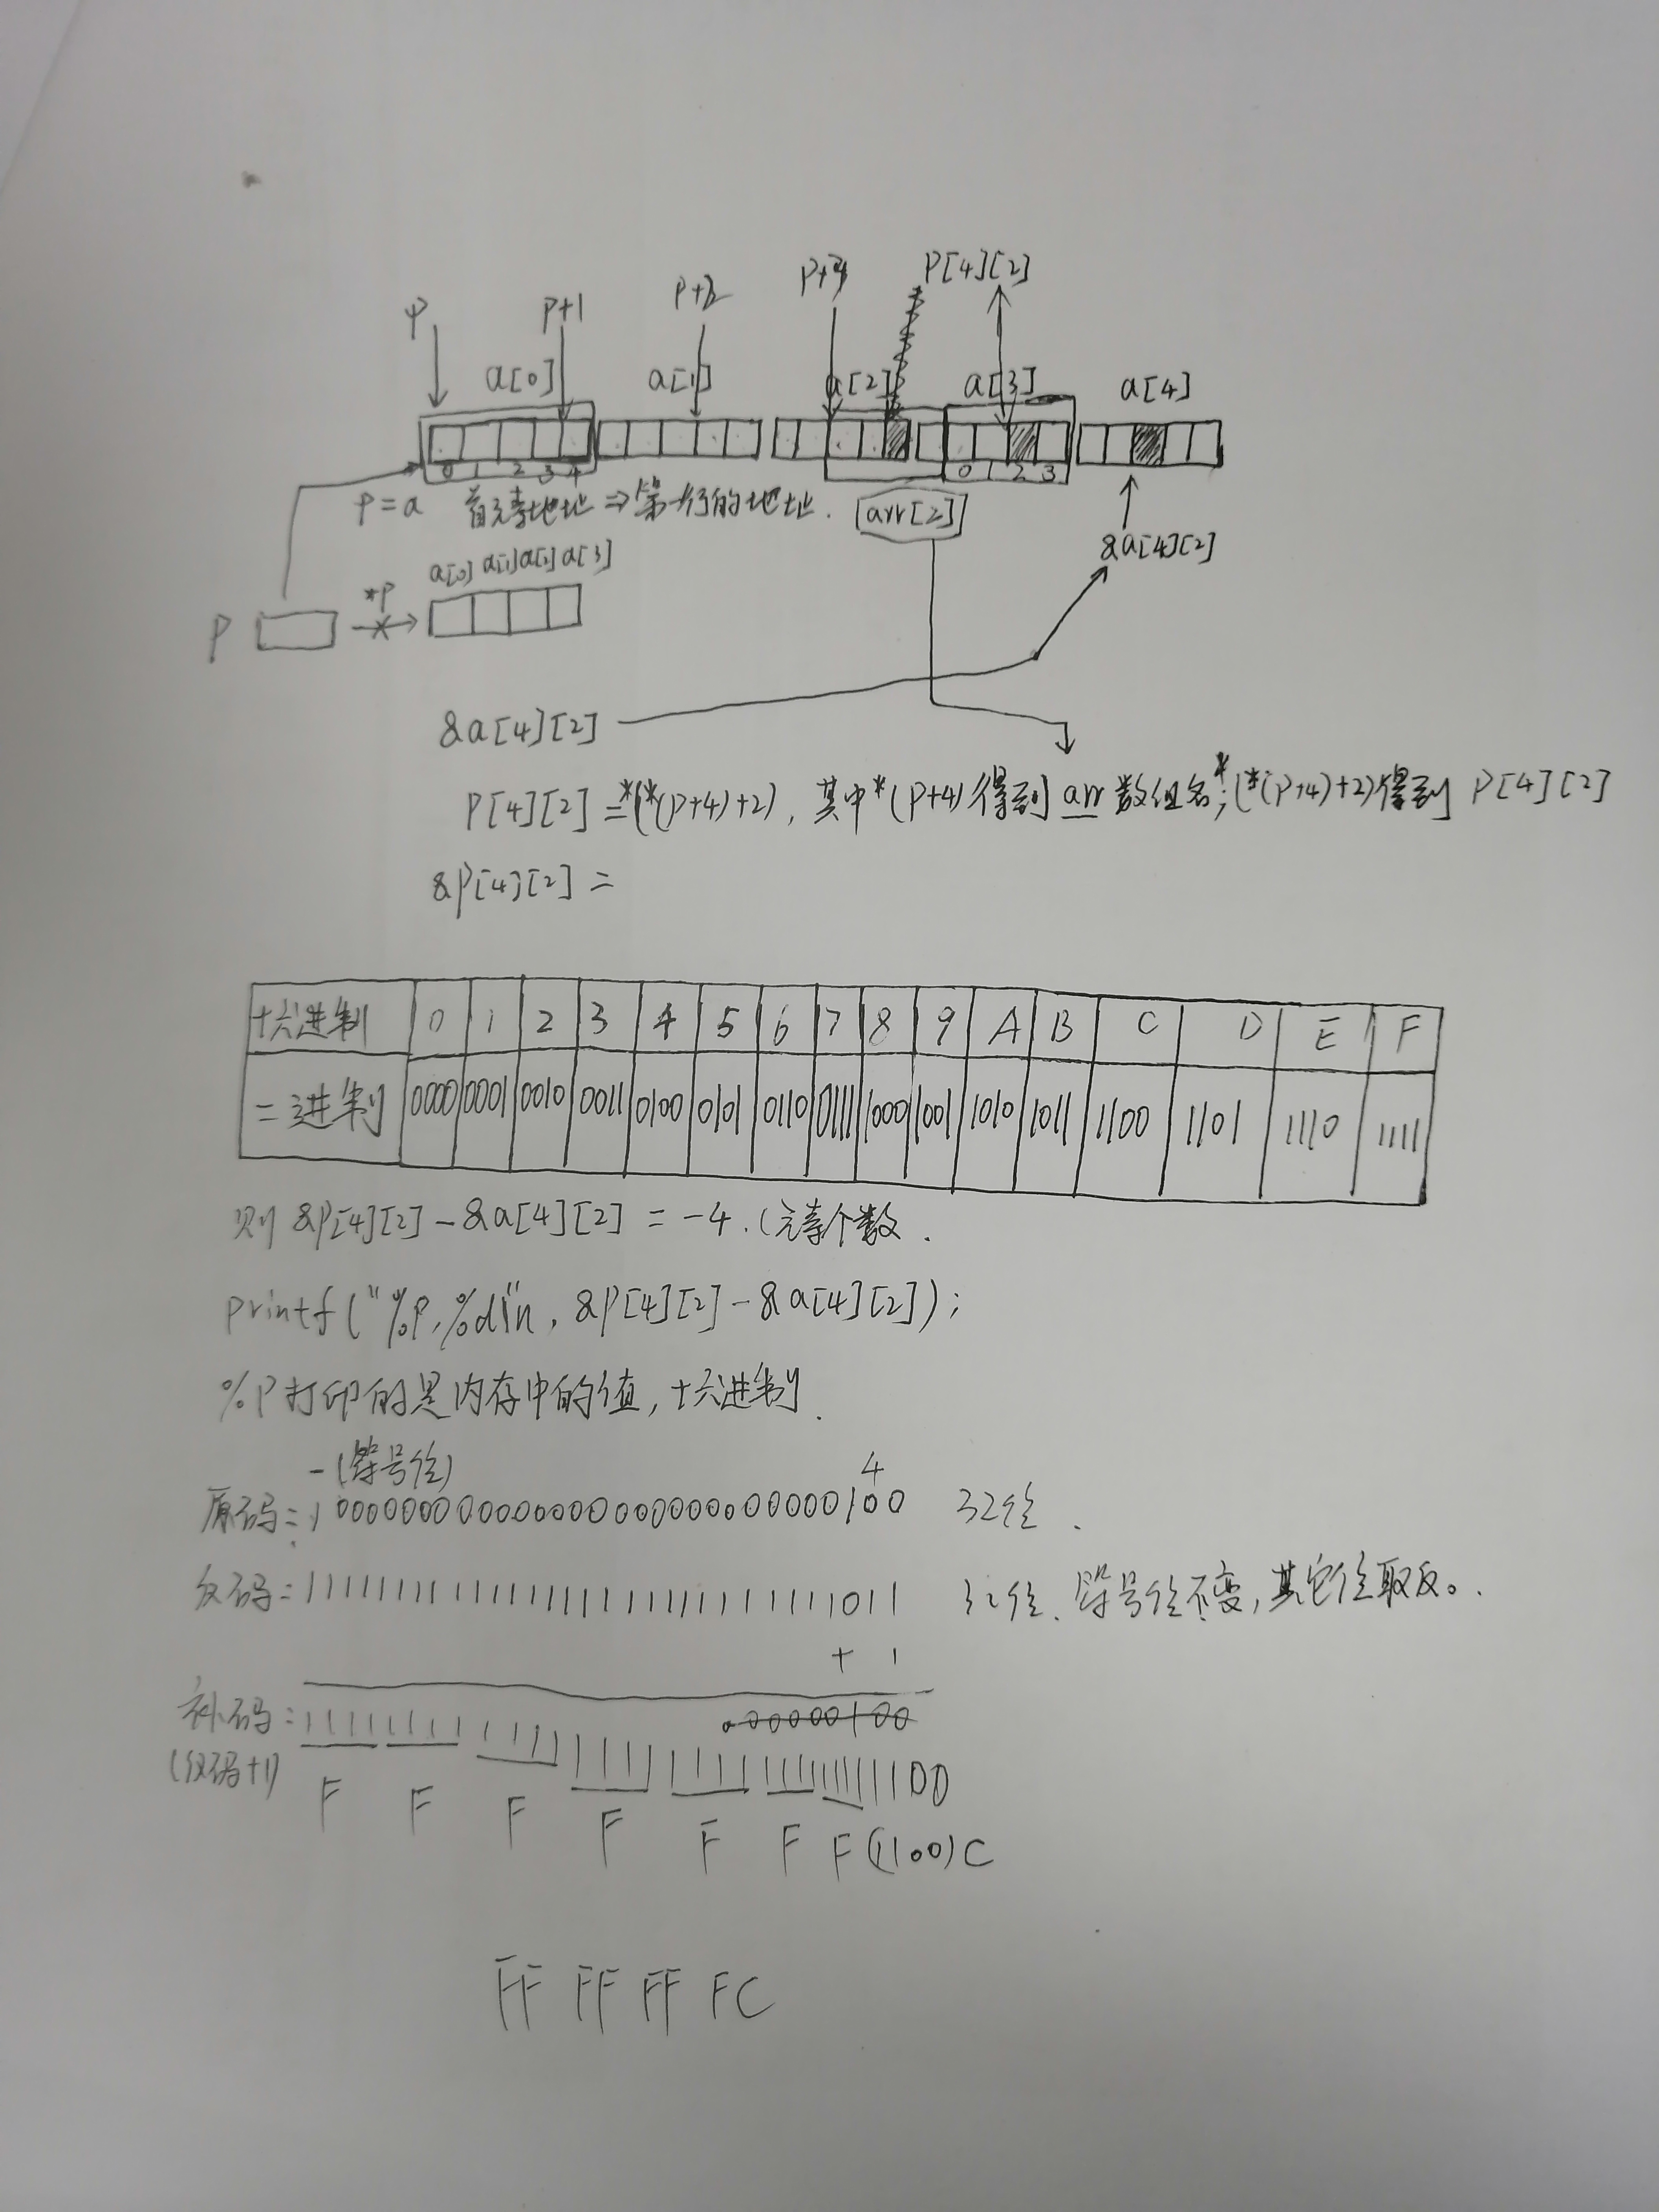 P[4][2]
P P+1 P+2 P+3
a[0] a[1] a[2] a[3] a[4]
0 1 2 3 4 0 1 2 3
P=a 首元素地址⇒第一行的地址. arr[2]
&a[4][2]
a[0] a[1] a[2] a[3]
P *P
&a[4][2]
P[4][2]=*(*(P+4)+2),其中*(P+4)得到arr数组名;*(*(P+4)+2)得到 P[4][2]
&P[4][2]=
十六进制 0 1 2 3 4 5 6 7 8 9 A B C D E F
二进制 0000 0001 0010 0011 0100 0101 0110 0111 1000 1001 1010 1011 1100 1101 1110 1111
则 &P[4][2]-&a[4][2]=-4.(元素个数.
printf("%P,%d\"n, &P[4][2]-&a[4][2]);
%P打印的是内存中的值,十六进制.
-(符号位) 4
原码=10000000000000000000000000000100 32位.
反码:11111111111111111111111111111011 32位.符号位不变,其它位取反。.
+ 1
补码: 11111111111111111111111111111100
(反码+1)
F F F F F F F (1100)C
FF FF FF FC